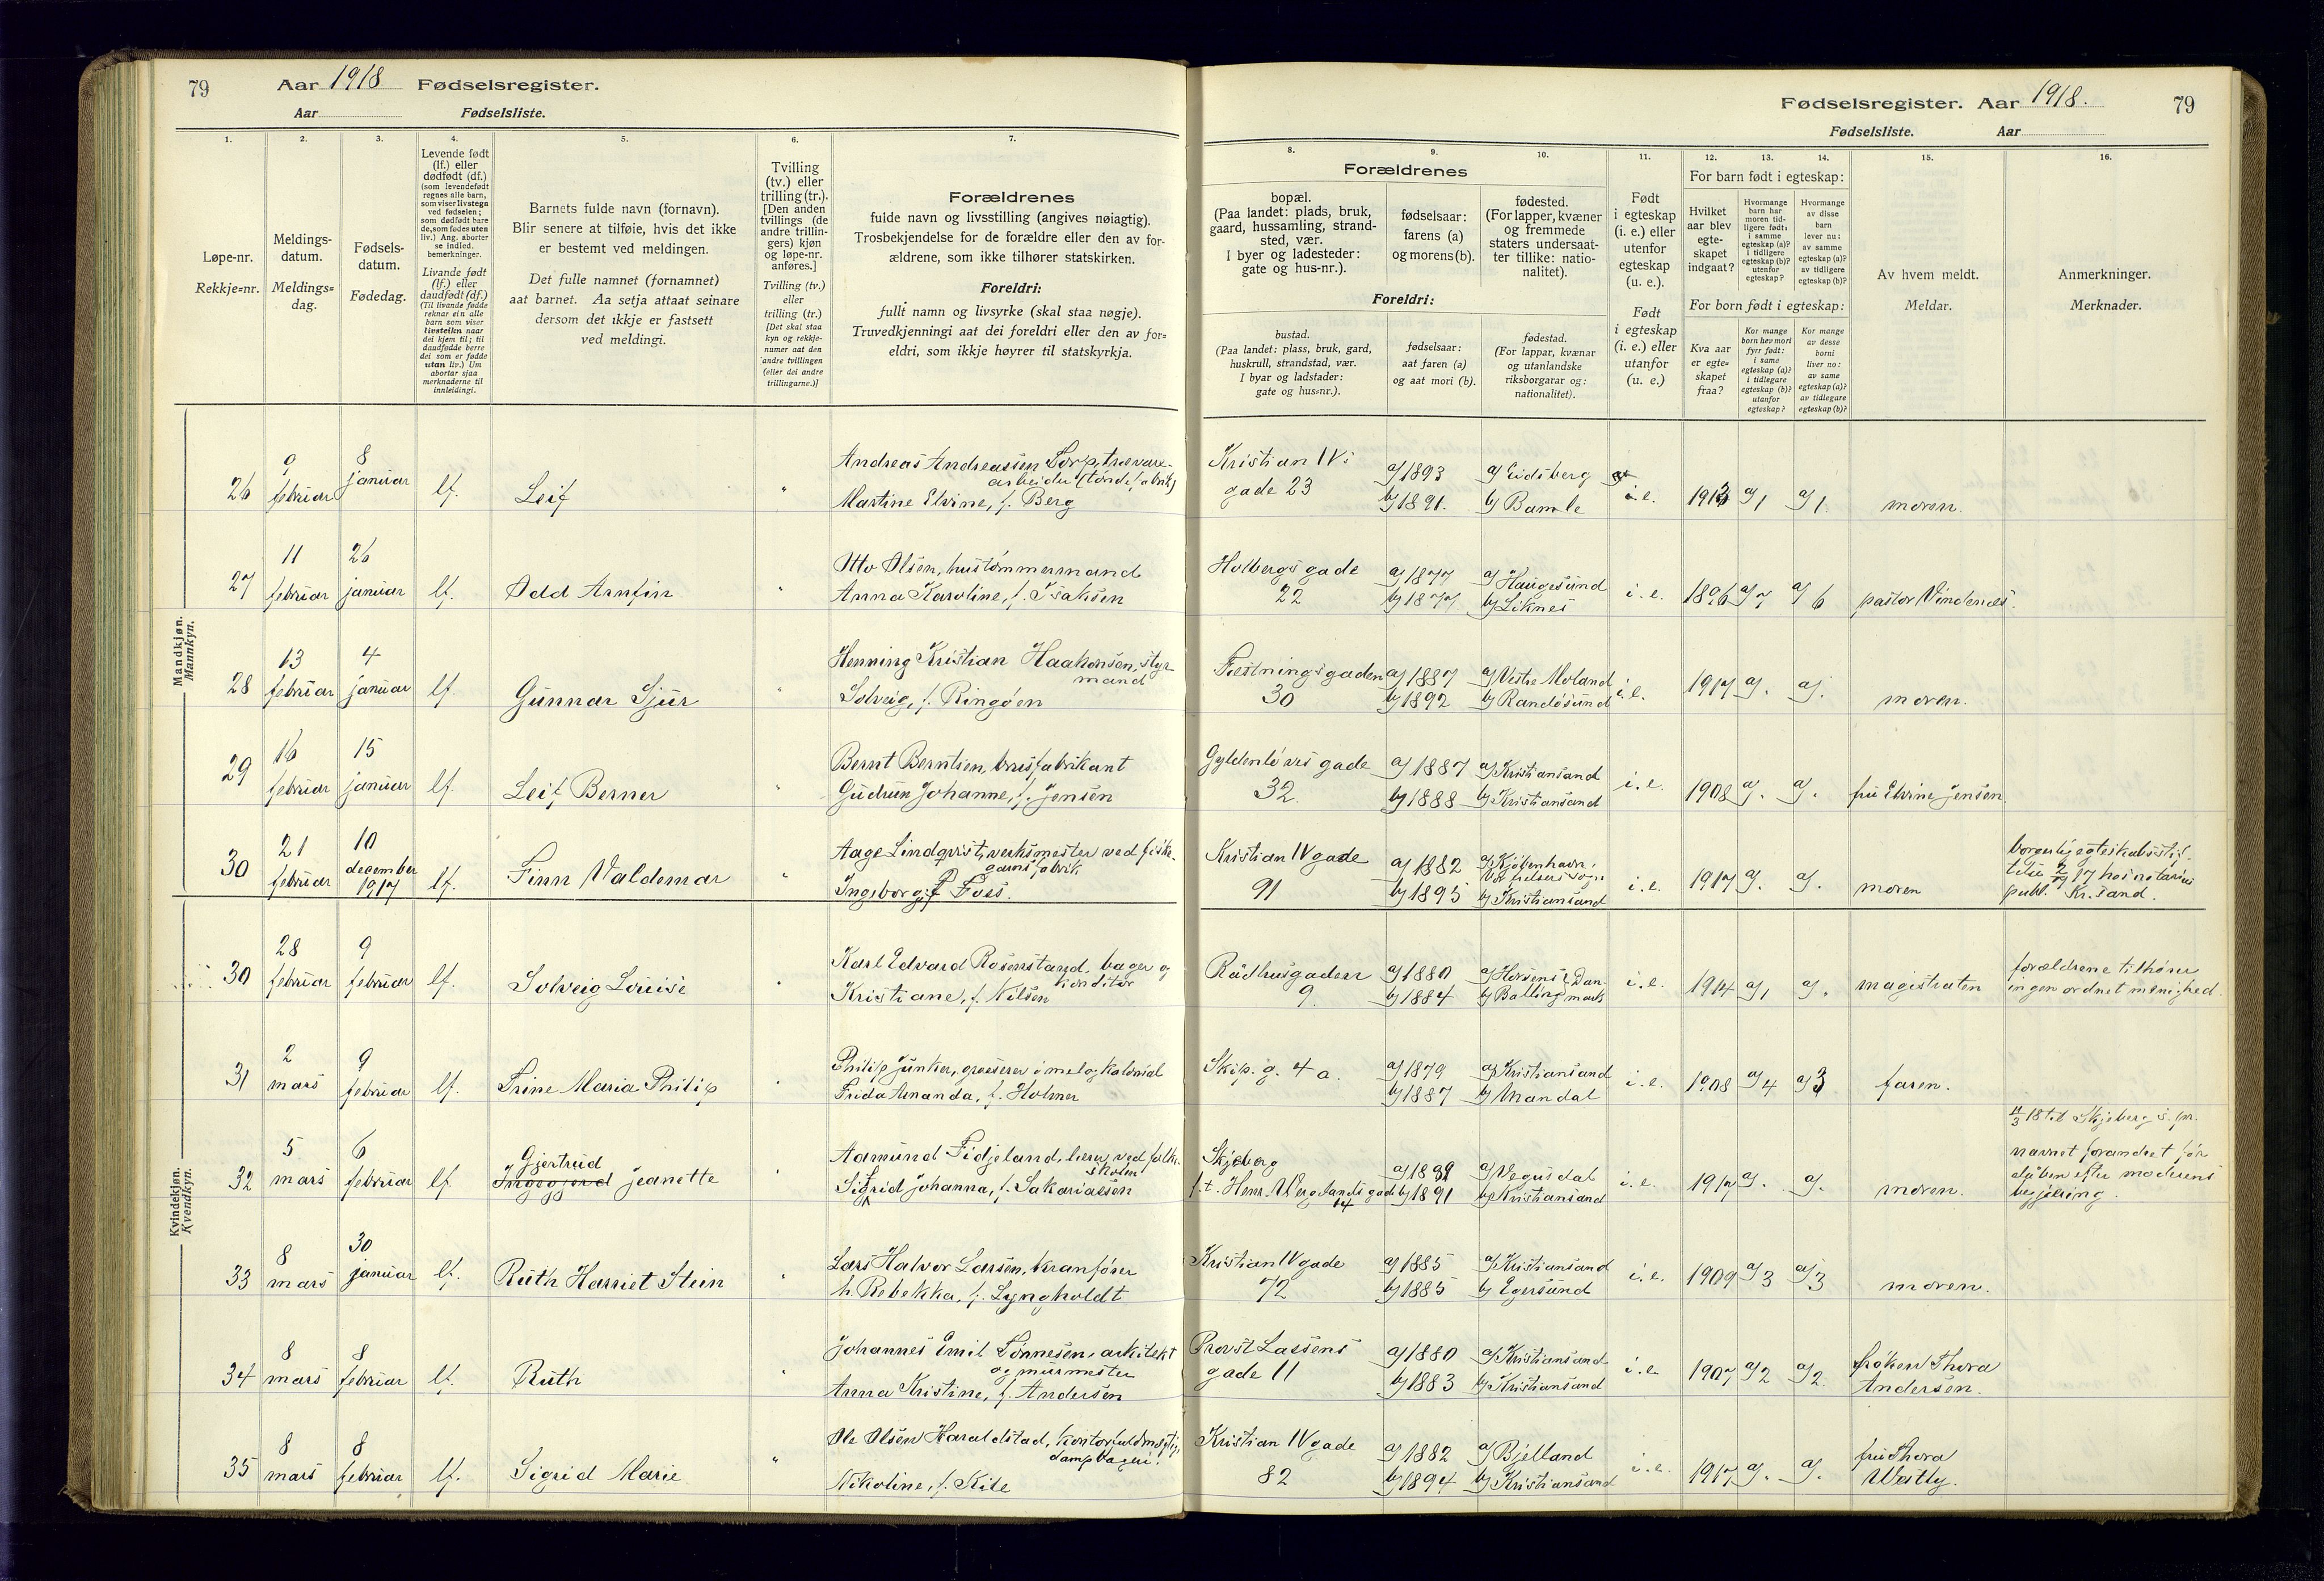 79 Aar 1918 Fødselsregister.
Aar Fødselsliste.
Fødselsregister. Aar 1918. 79
Fødselsliste. Aar
1.
Løpe-nr.
Rekkje=nr.
2.
Meldings-
datum.
Meldings=
dag.
3.
Fødsels-
datum.
Fødedag.
4.
Levende født
(lf.) eller
dødfødt (df.)
(som levendefødt
regnes alle barn,
som viser livstegn
ved fødselen;
som dødfødt bare
de, som fødes uten
liv.) Ang. aborter
se indled.
bemerkninger.
Livande født
(lf.) eller
daudfødt (df.)
(Til livande fødde
reknar ein alle
barn som viser
livsteikn naar
dei kjem til; til
daudfødde berre
dei som er fødde
utan liv.) Um
abortar sjaa
merknaderne til
innleidingi.
5.
Barnets fulde navn (fornavn).
Blir senere at tilføie, hvis det ikke
er bestemt ved meldingen.
Det fulle namnet (fornamnet)
aat barnet. Aa setja attaat seinare
dersom det ikkje er fastsett
ved meldingi.
6.
Tvilling
(tv.) eller
trilling (tr.).
[Den anden
tvillings (de
andre trillin-
gers) kjøn
og løpe-nr.
anføres.]
Tvilling (tv.)
eller
trilling (tr.)
[Det skal staa
kyn og rekkje-
numer aat den
andre tvillingen
(eller dei andre
trillingarne.)]
7.
Forældrenes
fulde navn og livsstilling (angives nøiagtig).
Trosbekjendelse for de forældre eller den av for-
ældrene, som ikke tilhører statskirken.
Foreldri:
fullt namn og livsyrke (skal staa nøgje).
Truvedkjenningi aat dei foreldri eller den av for=
eldri, som ikkje høyrer til statskyrkja.
Forældrenes
8.
bopæl.
(Paa landet: plads, bruk,
gaard, hussamling, strand-
sted, vær.
I byer og ladesteder:
gate og hus-nr.).
9.
fødselsaar:
farens (a)
og morens (b).
10.
fødested.
(For lapper, kvæner
og fremmede
staters undersaat-
ter tillike: natio-
nalitet).
Foreldri:
bustad.
(Paa landet: plass, bruk, gard,
huskrull, strandstad, vær.
I byar og ladstader:
gate og hus=nr.).
fødselsaar:
aat faren (a)
og aat mori (b).
fødestad.
(For lappar, kvænar
og utanlandske
riksborgarar og:
nationalitet).
11.
Født
i egteskap
(i. e.) eller
utenfor
egteskap
(u. e.).
Født
i egteskap
(i. e.) eller
utanfor
(u. e.)
12. 13. 14.
For barn født i egteskap:
Hvilket
aar blev
egte-
skapet
indgaat?
Hvormange
barn har
moren tid-
ligere født:
i samme
egteskap (a)?
i tidligere
egteskap (b)?
utenfor
egteskap?
Hvormange
av disse
barn
lever nu:
av samme
egteskap (a)?
av tidligere
egteskap (b)?
For born født i egteskap:
Kva aar
er egte-
skapet
fraa?
Kor mange
born hev mori
fyrr født:
i same
egteskap (a)?
i tidlegare
egteskap (b)?
utanfor
egteskap?
Kor mange
av desse
borni
liver no:
av same
egteskap (a)?
av tidlegare
egteskap (b)?
15.
Av hvem meldt.
Meldar.
16.
Anmerkninger.
Merknader.
Mandkjøn.
Mannkyn.
26 9 februar 8 januar lf. Leif "
Andreas Andreassen Torp, trævare-
arbeider (tøndefabrik)
Martine Elvine, f. Berg
Kristian IVs
gade 23
a) 1893
b) 1891.
a) Eidsberg
b) Bamle
i. e. 1913 a) 1 a) 1. moren.
27 11 februar 26 januar lf. Odd Arnfin "
Otto Olsen, hustømmermand
Anna Karoline, f. Isaksen
Holbergs gade
22
a) 1877
b) 1877
a) Haugesund
b) Liknes
i. e. 1896 a) 7 a) 6 pastor Vindenes.
28 13 februar 4 januar lf. Gunnar Sjur "
Henning Kristian Haakonsen, styr-
mand
Solveig, f. Ringøen
Festningsgaden
30
a) 1887
b) 1892
a) Vestre Moland
b) Randøsund
i. e. 1917 a). a). moren.
29 16 februar 15 januar lf. Leif Berner "
Bernt Berntsen, brusfabrikant
Gudrun Johanne, f. Jensen
Gyldenløves gade
32.
a) 1887
b) 1888
a) Kristiansand
b) Kristiansand
i. e. 1908 a). a). fru Elvine Jensen
30 21 februar 10 december 1917 lf. Finn Valdemar "
Aage Lindqvist, verksmester ved fiske-
garnsfabrik.
Ingeborg, f Foss.
Kristian IV gade
91
a) 1882
b) 1895
a) Kjøbenhavn,
Vor frelsers sogn
b) Kristiansand
i. e. 1917 a). a). moren
borgerlig egteskabsstif-
telse 2/7 17 hos notarius
publ. Kr.sand.
Kvindekjøn.
Kvendkyn.
30 28 februar 9 februar lf. Solveig Louise "
Karl Edvard Rosenstand, bager og
konditor
Kristiane, f. Nilsen
Rådhusgaden
9.
a) 1880
b) 1884
a) Horsens } Dan-
b) Balling } mark
i. e. 1914 a) 1 a). magistraten
forældrene tilhører
ingen ordnet menighed.
31 2 mars 9 februar lf. Trine Maria Philip "
Philip Junker, grosserer i mel og kolonial
Frida Amanda, f. Holmer
Skip. g. 4 a.
a) 1879
b) 1887
a) Kristiansand
b) Mandal
i. e. 1908 a) 4 a) 3 faren.
32 5 mars 6 februar lf. Gjertrud
Ingegjerd Jeanette "
Aamund Fidjeland, lærer ved folke-
skolen
Sigrid Johanna, f. Sakariassen
Skjeberg
f. t. Henr. Wergelands gade
14
b) 1891
a) Vegusdal
b) Kristiansand
i. e. 1917 a). a). moren.
11/3 18 til Skjeberg s. pr.
navnet forandret før
dåben efter moderens
begjæring.
33 8 mars 30 januar lf. Ruth Harriet Stein "
Lars Halvor Larsen, kranfører
h. Rebekka, f. Lyngholdt
Kristian IV gade
72
a) 1885
b) 1885
a) Kristiansand
b) Egersund
i. e. 1909 a) 3 a) 3 moren.
34 8 mars 8 februar lf. Ruth "
Johannes Emil Tønnesen, arkitekt
og murmester
Anna Kristine, f. Andersen
Provst Lassens
gade 11
a) 1880
b) 1883
a) Kristiansand
b) Kristiansand
i. e. 1907 a) 2 a) 2. frøken Thora
Andersen.
35 8 mars 8 februar lf. Sigrid Marie "
Ole Olsen Haraldstad, kontorfuldmægtig,
dampbageri.
Nikoline, f. Kile
Kristian IV gade
82
a) 1882
b) 1894
a) Bjelland
b) Kristiansand
i. e. 1917 a). a). fru Thora
Westly.